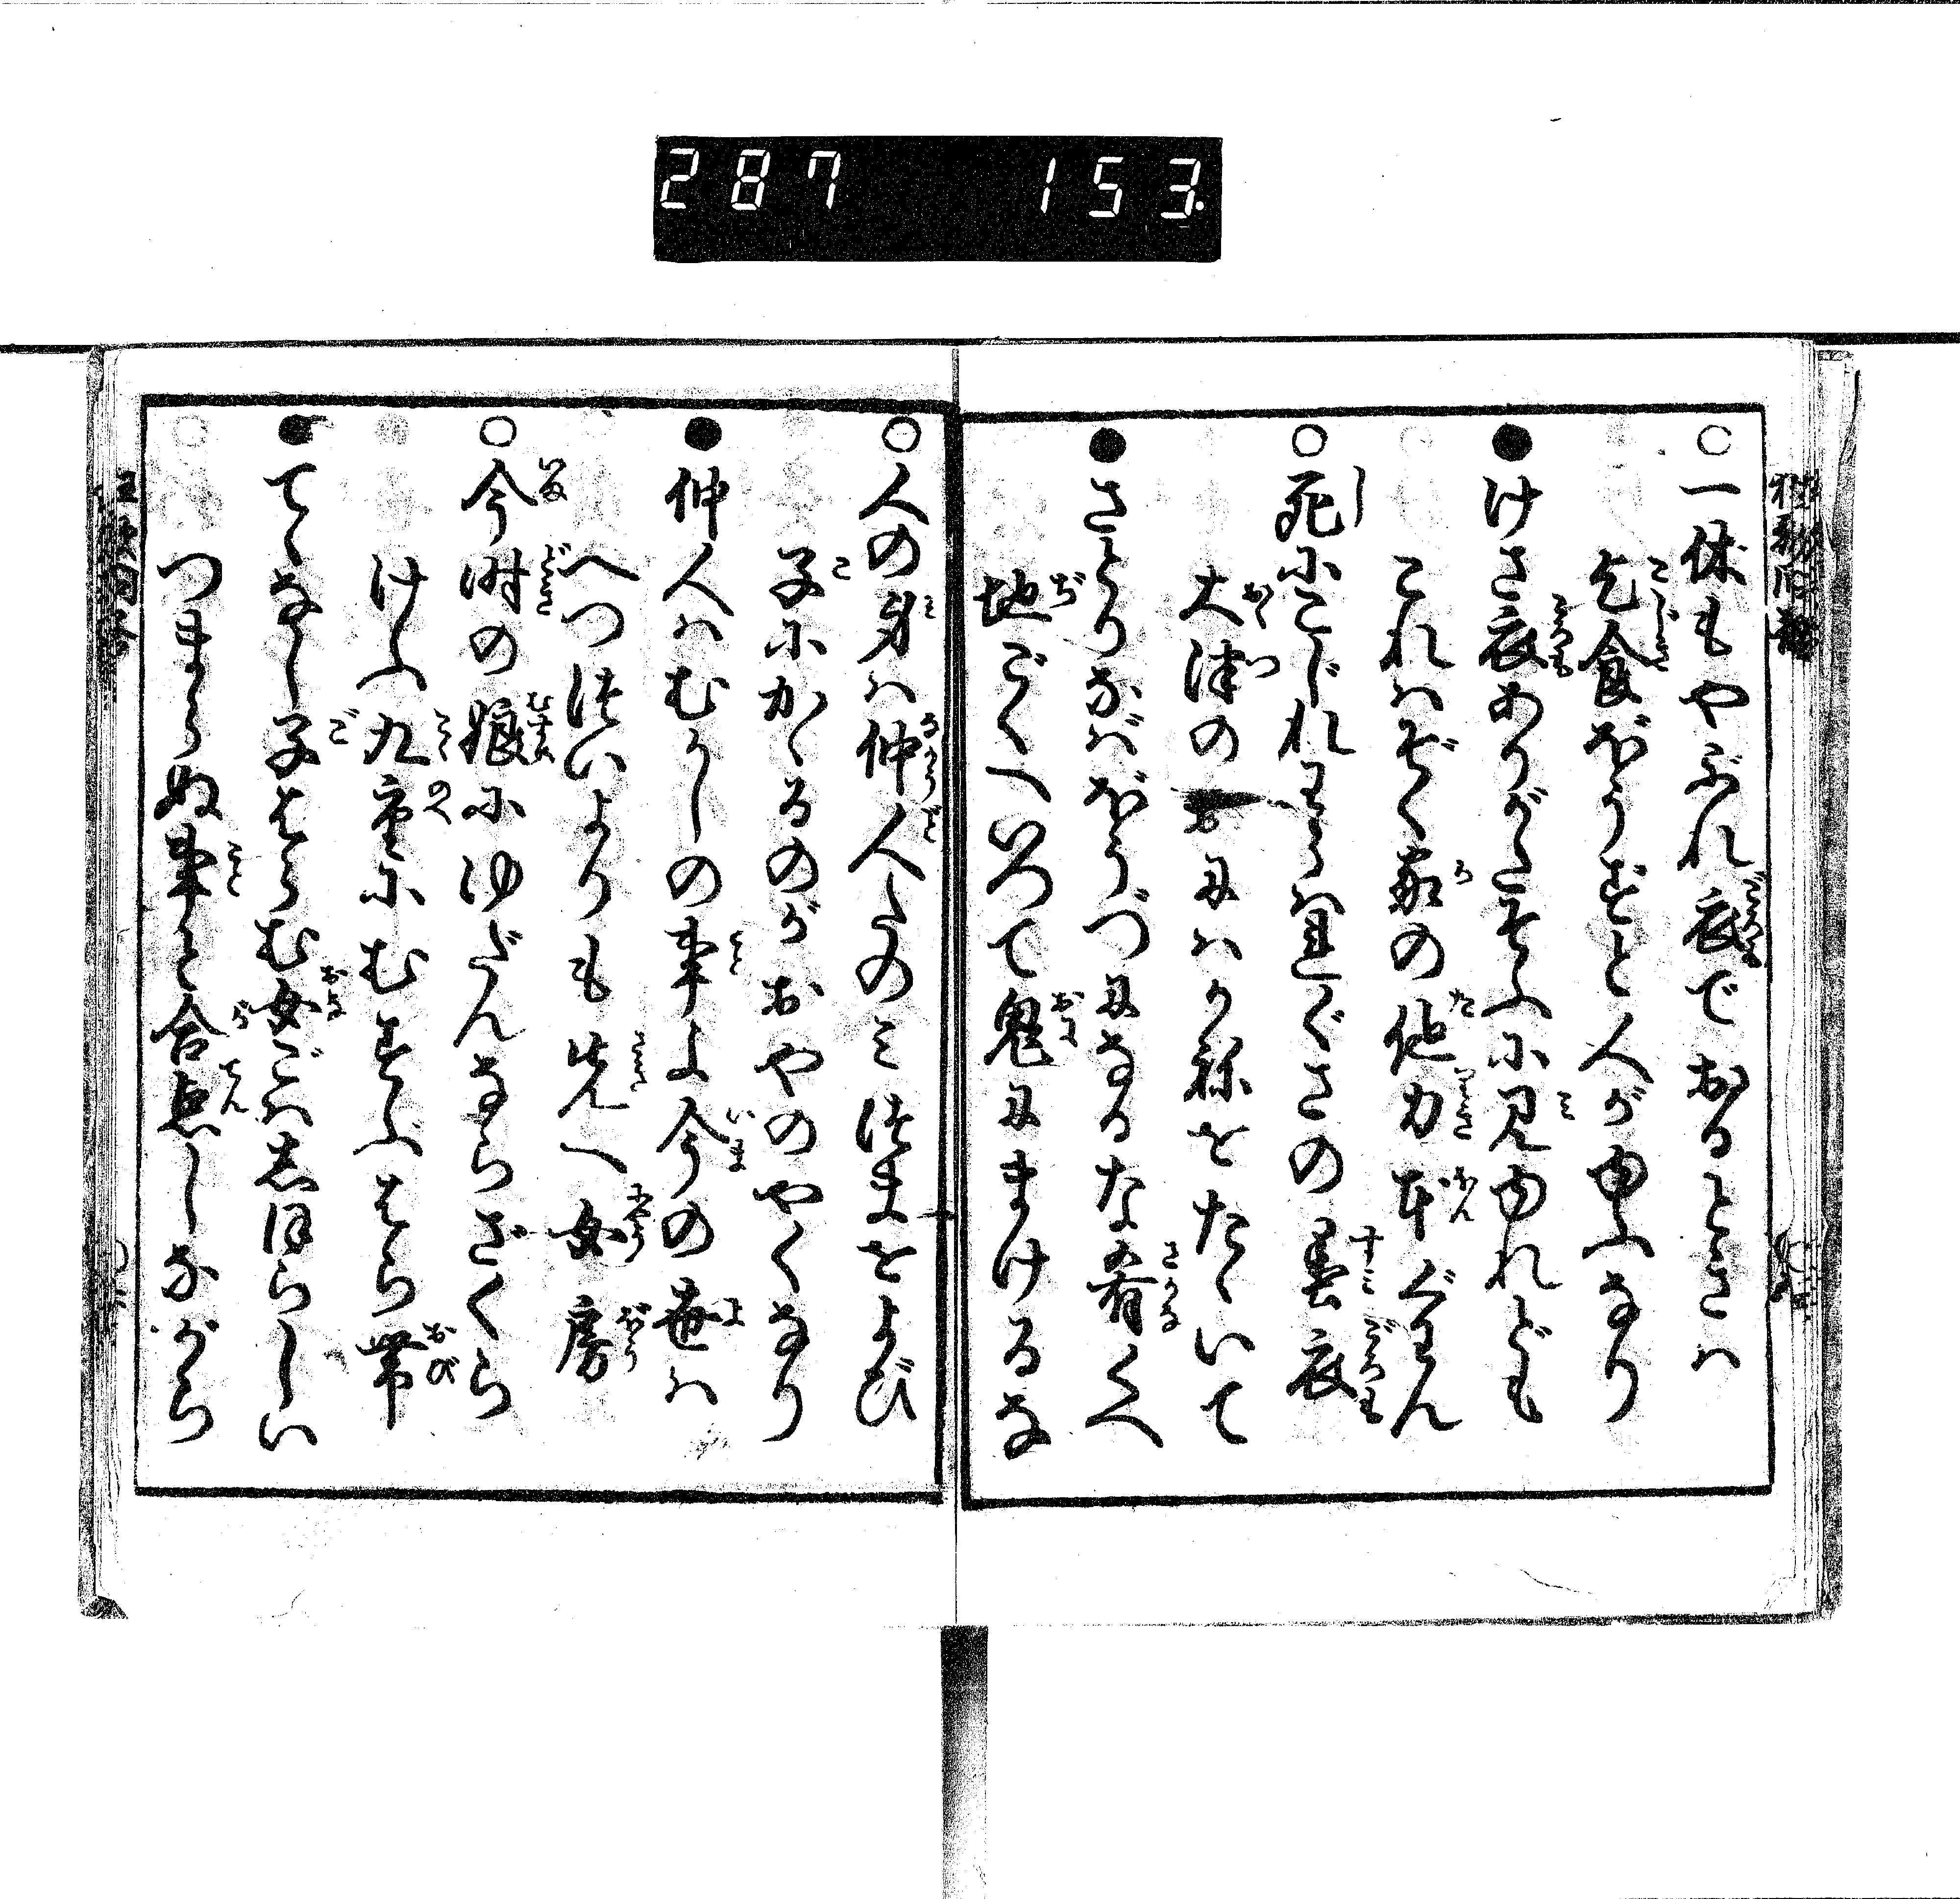 287 153
○一休もやぶれ衣でおるときハ
乞食ばうずと人がゆふなり
●けさ衣ありがたそふに見ゆれども
これハぞく家の他力本ぐわん
○死にこじれわらハ道ぐさの墨衣
大津の
にハかねをたゝいて
●さとりなばばうづになるな肴くへ
地ごくへいつて鬼にまけるな
○人の身ハ仲人たのミつまをよび
子にかゝるのがおやのやくなり
●仲人ハむかしの事よ今の世ハ
へつついよりも先へ女房
○今時の娘にゆだんならざくら
けふ九重にむすぶはら帯
●てゝなし子はらむ女ごハしほらしい
つまらぬ事と合点しながら